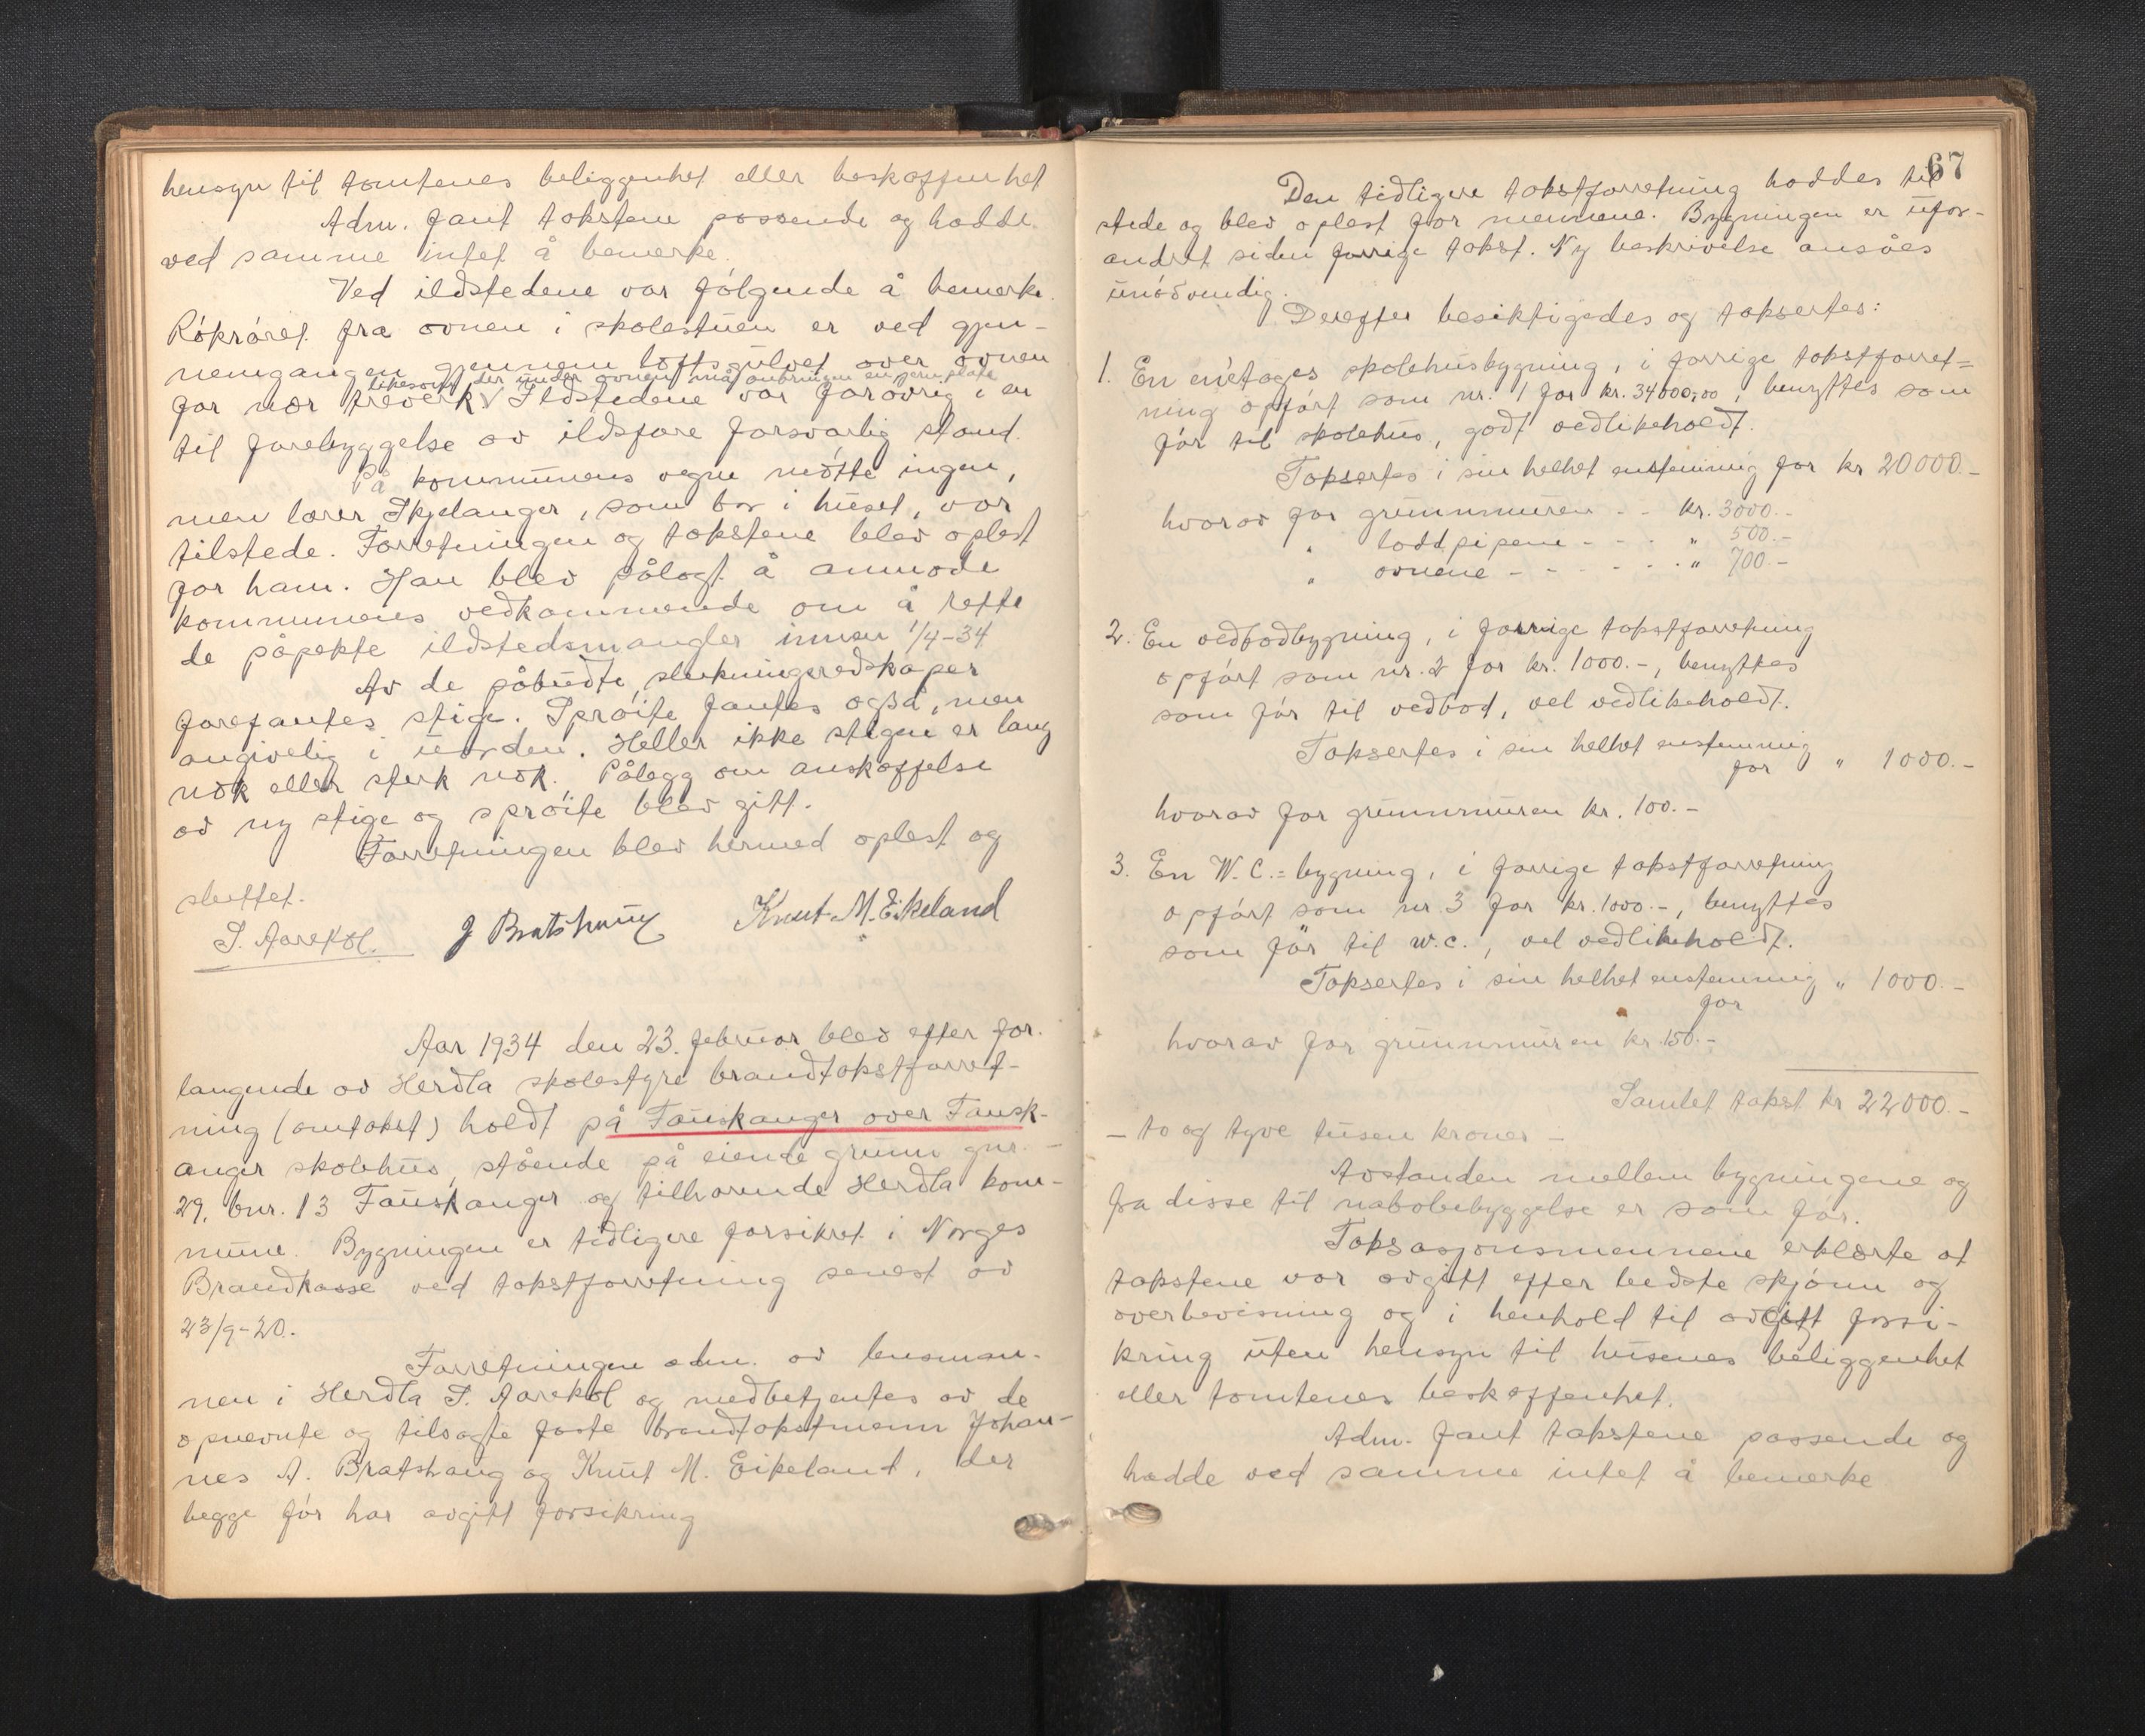 hensyn til tomtenes beliggenhet eller beskaffenhet
Adm. fant takstene passende og hadde
ved samme intet å bemerke.
Ved ildstedene var følgende å bemerke.
Rökröret fra ovnen i skolestuen er ved gjen-
nemgangen gjennem loftsgulvet over ovnen
likesom der under ovnen må anbringes en jernplate
for nær treverk. Ildstedene var forøvrig i en
til forebyggelse av ildsfare forsvarlig stand.
På kommunens vegne møtte ingen,
men lærer Skjelanger, som bor i huset, var
tilstede. Forretningen og takstene blev oplest
for ham. Han blev pålagt å anmode
kommunens vedkommende om å rette
de påpekte ildstedsmangler innen 1/4-34
Av de påbudte slukningsredskaper
forefantes stige. Sprøite fantes også, men
angivelig i uorden. Heller ikke stigen er lang
nok eller sterk nok. Pålegg om anskaffelse
av ny stige og sprøite blev gitt.
Forretningen blev hermed oplest og
sluttet.
J. Bratshaug Knut M. Eikeland
Aar 1934 den 23. februar blev efter for-
langende av Herdla skolestyre brandtakstforret-
ning (omtakst) holdt på Fauskanger over Fausk-
anger skolehus, stående på eiende grunn gnr.
29, bnr. 13 Fauskanger og tilhørende Herdla kom-
mune. Bygningen er tidligere forsikret i Norges
Brandkasse ved takstforretning senest av
23/9-20.
Forretningen adm. av lensman-
nen i Herdla og medbetjentes av de
opnevnte og tilsagte faste brandtakstmenn Johan-
nes A. Bratshaug og Knut M. Eikeland, der
begge før har avgitt forsikring
67
Den tidligere takstforretning haddes til
stede og blev oplest for mennene. Bygningen er ufor-
andret siden forrige takst. Ny beskrivelse ansåes
unödvendig.
Derefter besiktigedes og taksertes:
1. En enetages skolehusbygning, i forrige takstforret=
ning opført som nr. 1 for kr. 34000,00, benyttes som
för til skolehus, godt vedlikeholdt.
Taksertes i sin helhet enstemmig for kr 20000.-
hvorav for grunnmuren - - kr. 3000.-
" loddpipene - - - " 500.-
" ovnene - - - - - - " 700.-
2. En vedbodbygning, i forrige takstforretning
opført som nr. 2 for kr. 1000.-, benyttes
som før til vedbod, vel vedlikeholdt.
Taksertes i sin helhet enstemmig
for " 1000.-
hvorav for grunnmuren kr. 100.-
3. En W.C.=bygning, i forrige takstforretning
opført som nr. 3 for kr. 1000.-, benyttes
som før til w.c., vel vedlikeholdt.
Taksertes i sin helhet enstemmig " 1000.-
for
hvorav for grunnmuren kr. 150.-
Samlet takst kr 22000.-
- to og tyve tusen kroner -
Avstanden mellem bygningene og
fra disse til nabobebyggelse er som før.
Taksasjonsmennene erklærte at
takstene var avgitt efter bedste skjønn og
overbevisning og i henhold til avgitt forsi-
kring uten hensyn til husenes beliggenhet
eller tomtenes beskaffenhet.
Adm. fant takstene passende og
hadde ved samme intet å bemerke